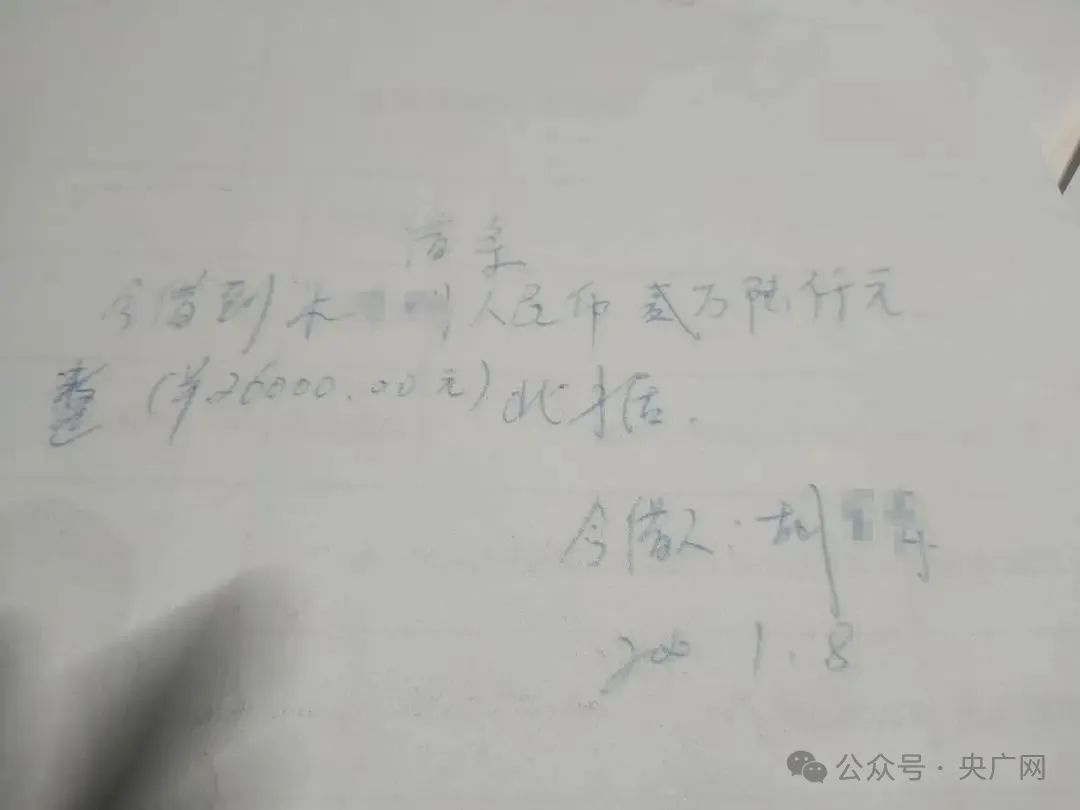 借条
今借到 人民币贰万陆仟元
整(¥26000.00元)此据.
今借人:胡
200 1.8
公众号·央广网